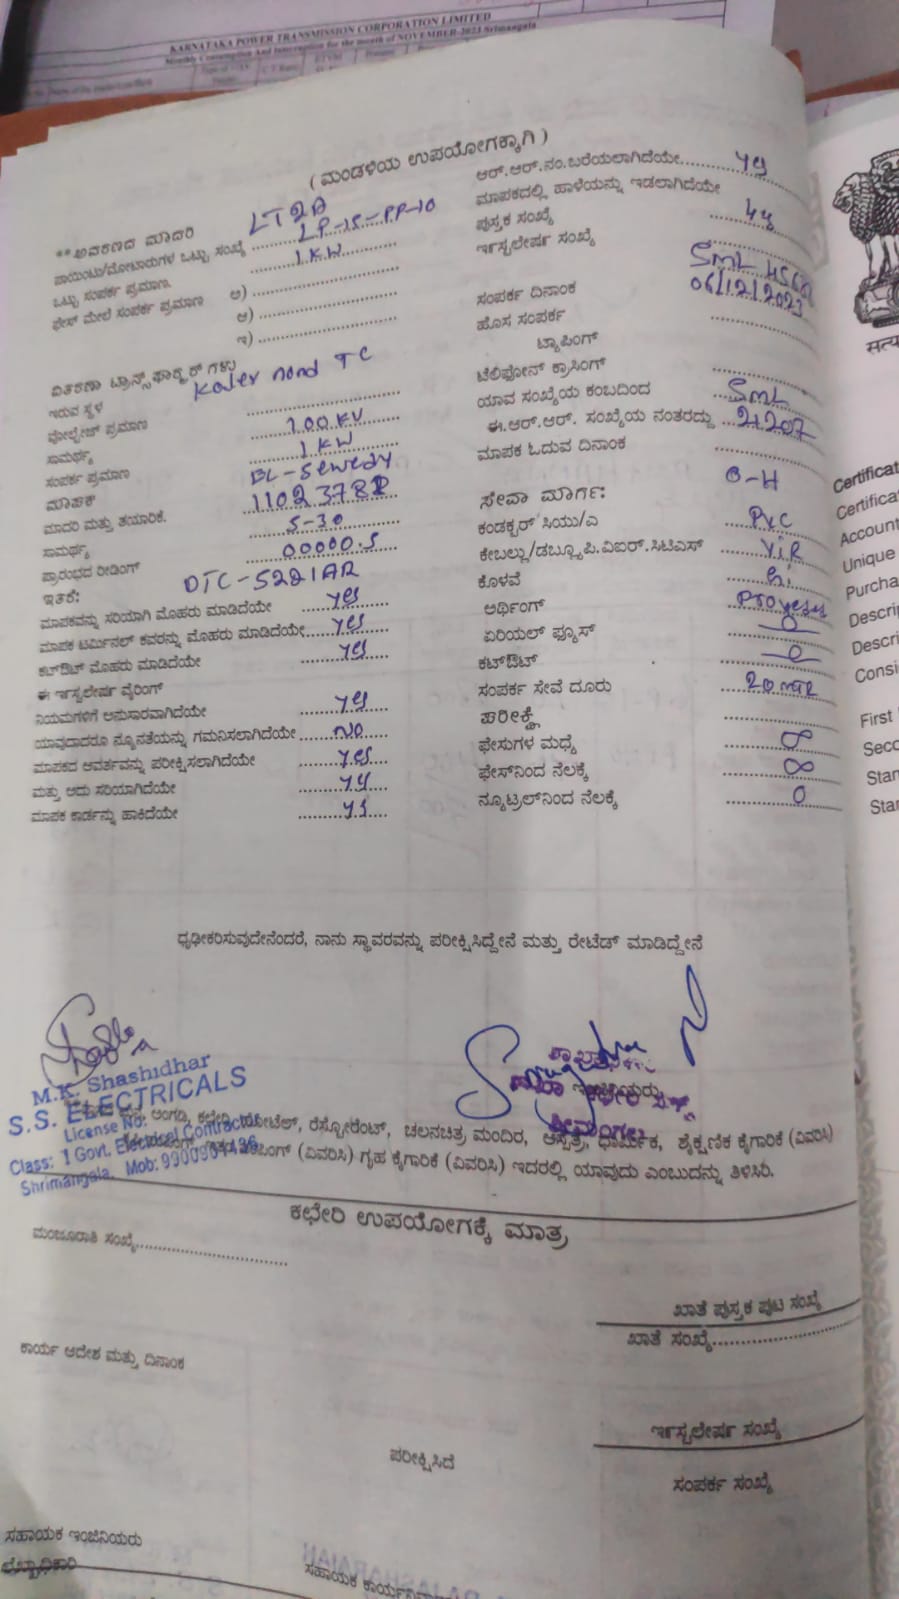 KARNATAKA POWER TRANSMISSION CORPORATION LIMITED
Monthly Consumption And Interruption for the month of NOVEMBER-2023 Srimangala
( ಮಂಡಳಿಯ ಉಪಯೋಗಕ್ಕಾಗಿ )
**ಅವತರಣದ ಮಾದರಿ LT2A
ಪಾಯಿಂಟು/ಮೋಟಾರುಗಳ ಒಟ್ಟು ಸಂಖ್ಯೆ LP-15-PP-10
ಒಟ್ಟು ಸಂಪರ್ಕ ಪ್ರಮಾಣ. 1KW
ಫೇಸ್ ಮೇಲೆ ಸಂಪರ್ಕ ಪ್ರಮಾಣ ಅ)
ಆ)
ಇ)
ವಿತರಣಾ ಟ್ರಾನ್ಸ್‌ಫಾರ್ಮರ್ ಗಳು
ಇರುವ ಸ್ಥಳ TC
ವೋಲ್ಟೇಜ್ ಪ್ರಮಾಣ
ಸಾಮರ್ಥ್ಯ 100 KV
ಸಂಪರ್ಕ ಪ್ರಮಾಣ 1KW
ಮಾಪಕ
ಮಾದರಿ ಮತ್ತು ತಯಾರಿಕೆ.
ಸಾಮರ್ಥ್ಯ 5-30
ಪ್ರಾರಂಭದ ರೀಡಿಂಗ್ 00000.5
ಇತರೆ: DTC-5221AR
ಮಾಪಕವನ್ನು ಸರಿಯಾಗಿ ಮೊಹರು ಮಾಡಿದೆಯೇ yes
ಮಾಪಕ ಟರ್ಮಿನಲ್ ಕವರನ್ನು ಮೊಹರು ಮಾಡಿದೆಯೇ yes
ಕಟ್‌ಔಟ್ ಮೊಹರು ಮಾಡಿದೆಯೇ yes
ಈ ಇನ್ಸ್ಟಲೇಷನ್ ವೈರಿಂಗ್
ನಿಯಮಗಳಿಗೆ ಅನುಸಾರವಾಗಿದೆಯೇ yes
ಯಾವುದಾದರೂ ನ್ಯೂನತೆಯನ್ನು ಗಮನಿಸಲಾಗಿದೆಯೇ No
ಮಾಪಕದ ಆವರ್ತವನ್ನು ಪರೀಕ್ಷಿಸಲಾಗಿದೆಯೇ yes
ಮತ್ತು ಅದು ಸರಿಯಾಗಿದೆಯೇ
ಮಾಪಕ ಕಾರ್ಡನ್ನು ಹಾಕಿದೆಯೇ
ಆರ್.ಆರ್.ನಂ.ಬರೆಯಲಾಗಿದೆಯೇ
ಮಾಪಕದಲ್ಲಿ ಹಾಳೆಯನ್ನು ಇಡಲಾಗಿದೆಯೇ
ಪುಸ್ತಕ ಸಂಖ್ಯೆ
ಇನ್ಸ್ಟಲೇಷನ್ ಸಂಖ್ಯೆ
ಸಂಪರ್ಕ ದಿನಾಂಕ 06/12/2023
ಹೊಸ ಸಂಪರ್ಕ
ಟ್ಯಾಪಿಂಗ್
ಟೆಲಿಫೋನ್ ಕ್ರಾಸಿಂಗ್
ಯಾವ ಸಂಖ್ಯೆಯ ಕಂಬದಿಂದ SML
ಈ.ಆರ್.ಆರ್. ಸಂಖ್ಯೆಯ ನಂತರದ್ದು 21207
ಮಾಪಕ ಓದುವ ದಿನಾಂಕ
ಸೇವಾ ಮಾರ್ಗ: O-H
ಕಂಡಕ್ಟರ್ ಸಿಯು/ಎ PVC
ಕೇಬಲ್ಲು/ಡಬ್ಲ್ಯೂಪಿ.ವಿಐಆರ್.ಸಿಟಿಎಸ್ VIR
ಕೊಳವೆ
ಅರ್ಥಿಂಗ್
ಏರಿಯಲ್ ಫ್ಯೂಸ್
ಕಟ್‌ಔಟ್
ಸಂಪರ್ಕ ಸೇವೆ ದೂರ 20
ಪರೀಕ್ಷೆ
ಫೇಸುಗಳ ಮಧ್ಯೆ ∞
ಫೇಸ್‌ನಿಂದ ನೆಲಕ್ಕೆ ∞
ನ್ಯೂಟ್ರಲ್‌ನಿಂದ ನೆಲಕ್ಕೆ 0
ಧೃಢೀಕರಿಸುವುದೇನೆಂದರೆ, ನಾನು ಸ್ಥಾವರವನ್ನು ಪರೀಕ್ಷಿಸಿದ್ದೇನೆ ಮತ್ತು ರೇಟೆಡ್ ಮಾಡಿದ್ದೇನೆ
M.K. Shashidhar
S.S. ELECTRICALS
License No:
Class: 1 Govt. Electrical Contractor
Shrimangala. Mob:
ಅಂಗಡಿ, ಕಛೇರಿ, ಹೋಟೆಲ್, ರೆಸ್ಟೋರೆಂಟ್, ಚಲನಚಿತ್ರ ಮಂದಿರ, ಆಸ್ಪತ್ರೆ, ಧಾರ್ಮಿಕ, ಶೈಕ್ಷಣಿಕ ಕೈಗಾರಿಕೆ (ವಿವರಿಸಿ)
(ವಿವರಿಸಿ) ಗೃಹ ಕೈಗಾರಿಕೆ (ವಿವರಿಸಿ) ಇದರಲ್ಲಿ ಯಾವುದು ಎಂಬುದನ್ನು ತಿಳಿಸಿರಿ.
ಕಛೇರಿ ಉಪಯೋಗಕ್ಕೆ ಮಾತ್ರ
ಮಂಜೂರಾತಿ ಸಂಖ್ಯೆ
ಖಾತೆ ಪುಸ್ತಕ ಪುಟ ಸಂಖ್ಯೆ
ಖಾತೆ ಸಂಖ್ಯೆ
ಕಾರ್ಯ ಆದೇಶ ಮತ್ತು ದಿನಾಂಕ
ಇನ್ಸ್ಟಲೇಷನ್ ಸಂಖ್ಯೆ
ಪರೀಕ್ಷಿಸಿದೆ
ಸಂಪರ್ಕ ಸಂಖ್ಯೆ
ಸಹಾಯಕ ಇಂಜಿನಿಯರು
ಲೆಖ್ಖಾಧಿಕಾರಿ
ಸಹಾಯಕ
सत्य
Certificat
Certificat
Account
Unique
Purcha
Descrip
Descri
Consi
First
Seco
Stan
Star